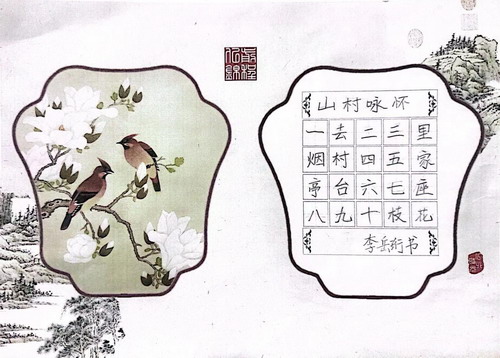 山村咏怀
一去二三里
烟村四五家
亭台六七座
八九十枝花
李岳珩书